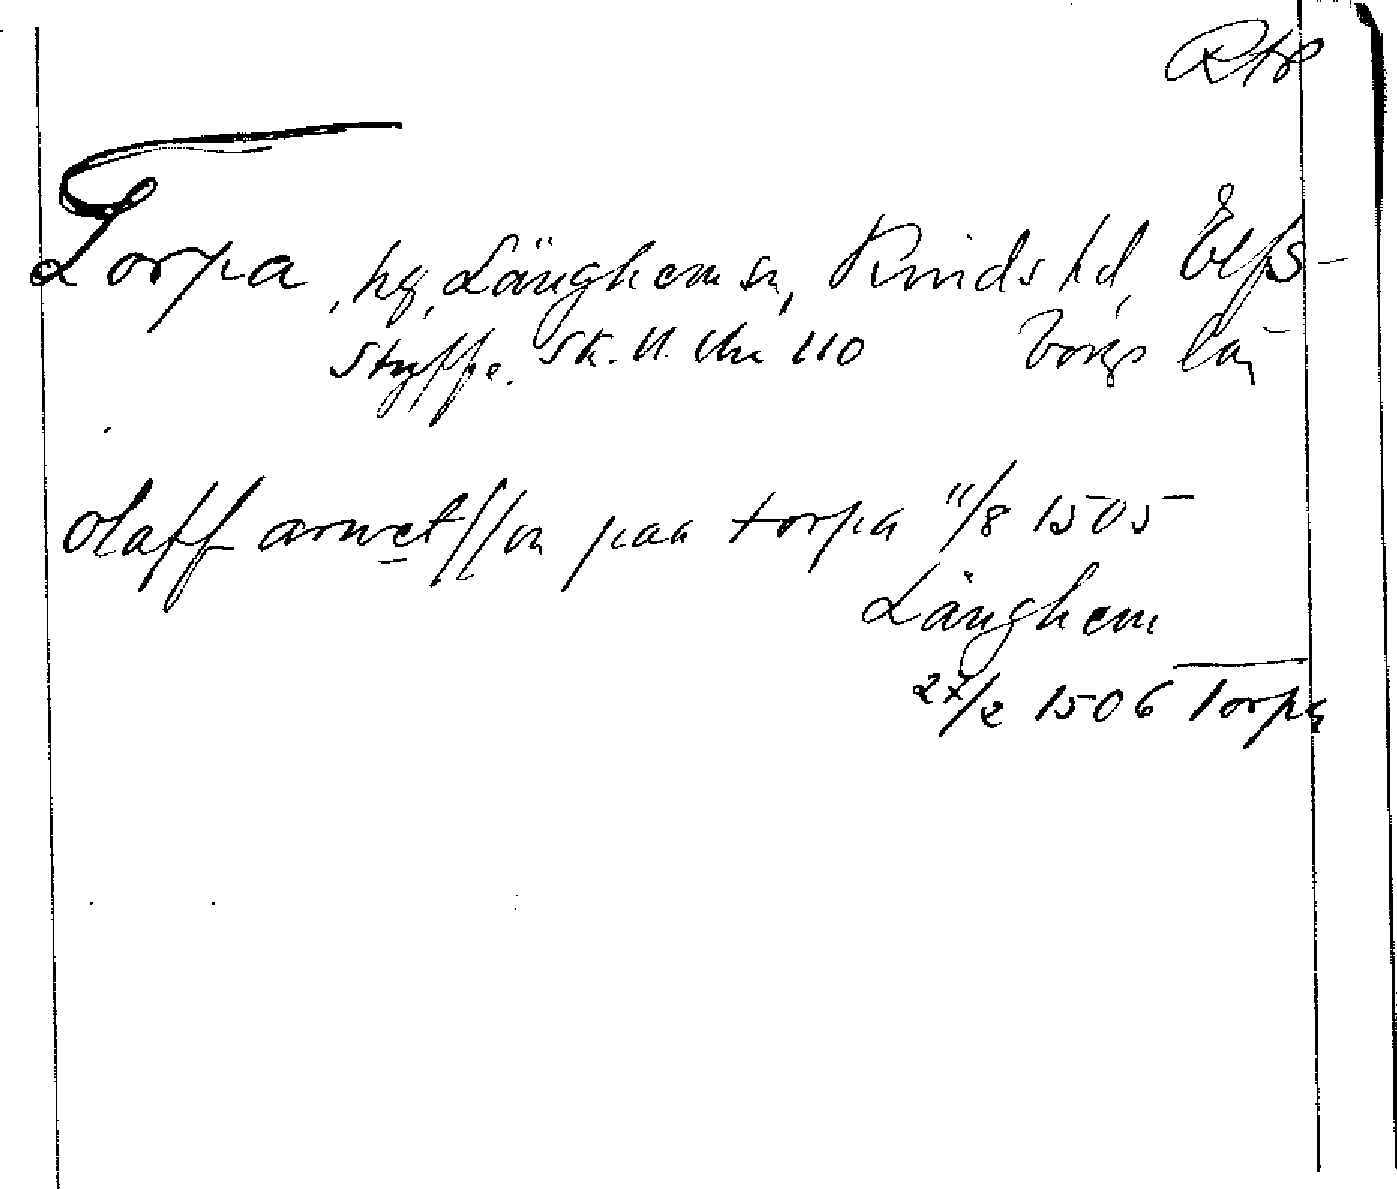 Torpa, hg, Länghem sn, Kinds hd, Elfs-
Styffe. Sk. U. 110 borgs län
Olaff arwetsson paa torpa 11/8 1505
Länghem
27/2 1506 Torpa